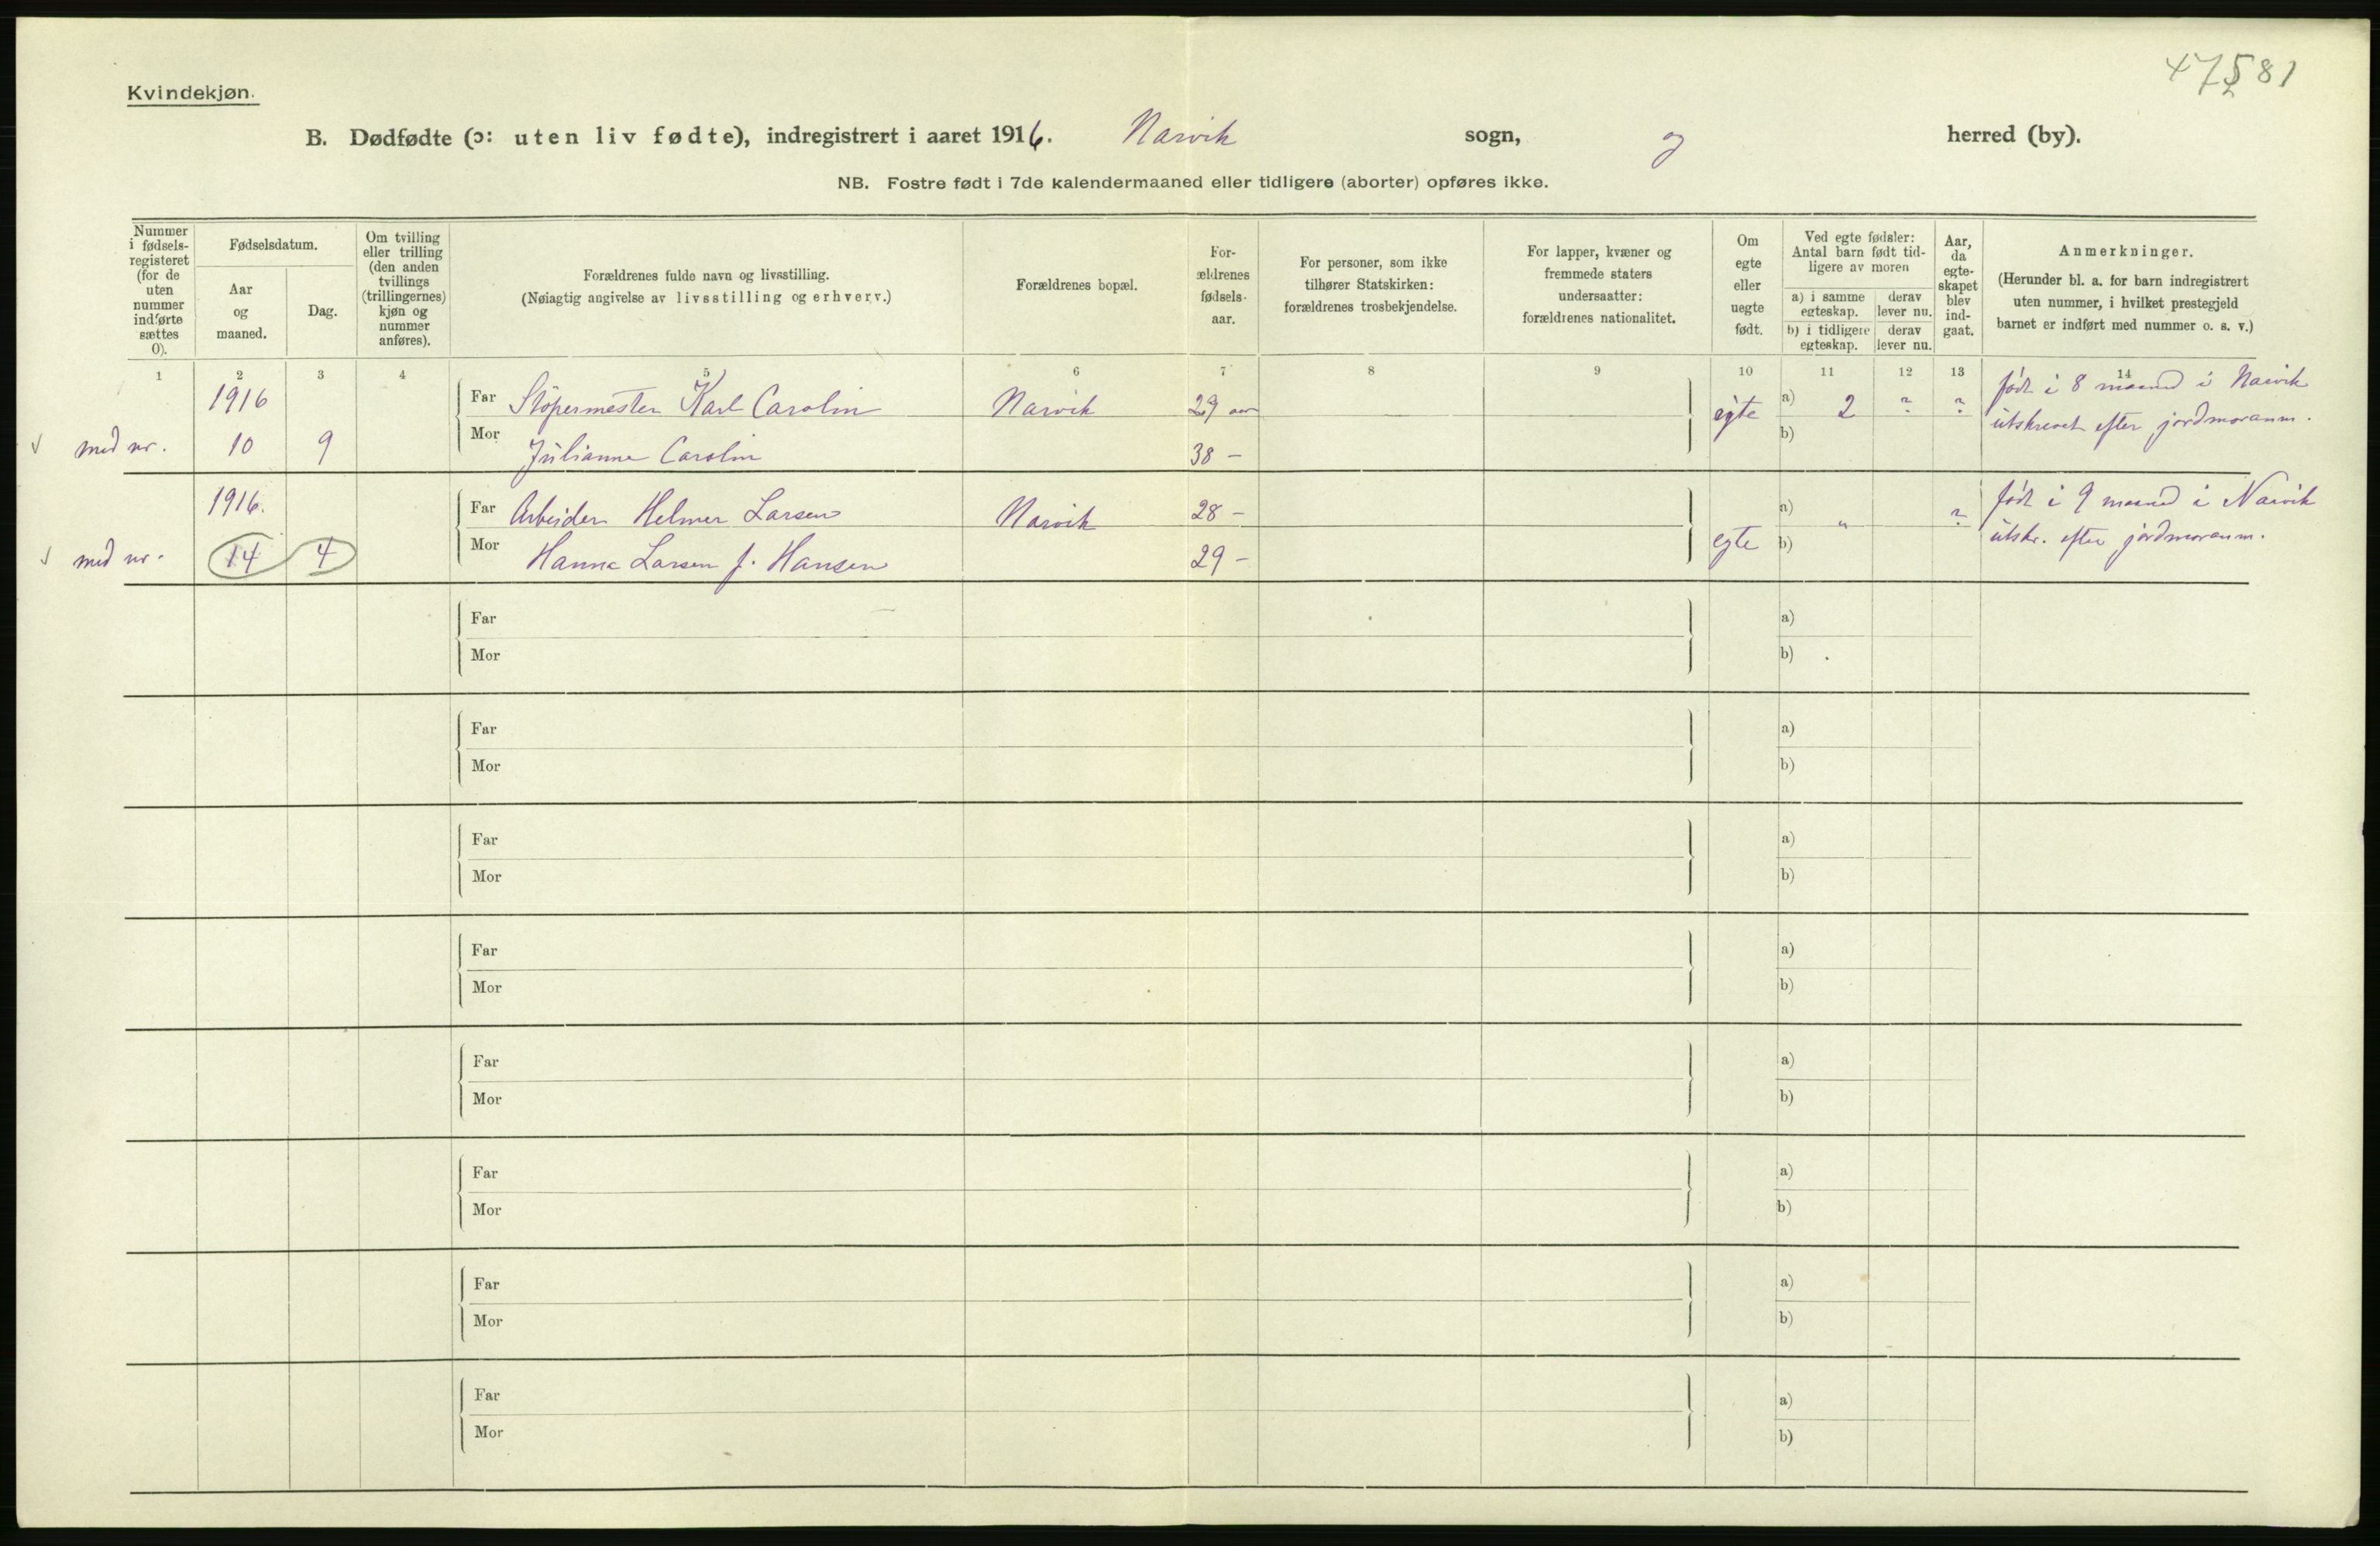 47581
Kvindekjøn.
B. Dødfødte (ɔ: uten liv fødte), indregistrert i aaret 1916. Narvik sogn, og herred (by).
NB. Fostre født i 7de kalendermaaned eller tidligere (aborter) opføres ikke.
Nummer i fødsels-registeret (for de uten nummer indførte sættes 0).
Fødselsdatum.
Aar og maaned.
Dag.
Om tvilling eller trilling (den anden tvillings (trillingernes) kjøn og nummer anføres).
Forældrenes fulde navn og livsstilling.
(Nøiagtig angivelse av livsstilling og erhverv.)
Forældrenes bopæl.
For-ældrenes fødsels-aar.
For personer, som ikke tilhører Statskirken: forældrenes trosbekjendelse.
For lapper, kvæner og fremmede staters undersaatter: forældrenes nationalitet.
Om egte eller uegte født.
Ved egte fødsler: Antal barn født tid-ligere av moren
a) i samme egteskap.
derav lever nu.
b) i tidligere egteskap.
derav lever nu.
Aar, da egte-skapet blev ind-gaat.
Anmerkninger.
(Herunder bl. a. for barn indregistrert uten nummer, i hvilket prestegjeld barnet er indført med nummer o. s. v.)
1 2 3 4 5 6 7 8 9 10 11 12 13 14
1916 Far Støpermester Karl Carolin Narvik 29 aar egte a) 2 ? ? født i 8 maaned i Narvik
utskrevet efter jordmoranm.
med nr. 10 9 Mor Julianne Carolin 38 – b)
1916. Far Arbeider Helmer Larsen Narvik 28 – a) " ? født i 9 maaned i Narvik
med nr. 14 4 Mor Hanna Larsen f. Hansen 29 – egte b) utskr. efter jordmoranm.
Far a)
Mor b)
Far a)
Mor b)
Far a)
Mor b)
Far a)
Mor b)
Far a)
Mor b)
Far a)
Mor b)
Far a)
Mor b)
Far a)
Mor b)